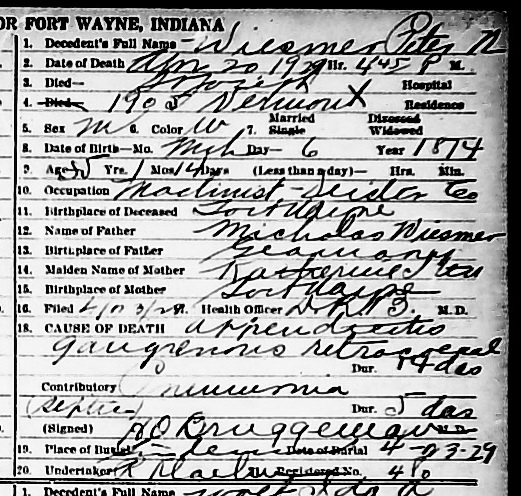 OR FORT WAYNE, INDIANA
1. Decedent's Full Name – Wiesmer Peter N
2. Date of Death Apr. 20 1929 Hr. 445 P M.
3. Died— Hospital
4. Died— 1905 Vermont X Residence
Married Divorced
5. Sex M 6. Color W 7. Single Widowed
8. Date of Birth—Mo. Mch Day— 6 Year 1874
9. Age 55 Yrs. 1 Mos 14 Days (Less than a day)— Hrs. Min.
10. Occupation Machinist
11. Birthplace of Deceased Fort Wayne
12. Name of Father Nicholas Wiesmer
13. Birthplace of Father Germany
14. Maiden Name of Mother Katherine
15. Birthplace of Mother Fort Wayne
16. Filed Health Officer M. D.
18. CAUSE OF DEATH appendicitis
gangrenous retrocecal
Dur. 14 das
Contributory Pneumonia
(septic) Dur. 5 das
(Signed) Bruggeman M. D.
19. Place of Burial Date of Burial 4-23-29
20. Undertaker Registered No. 4
1. Decedent's Full Name